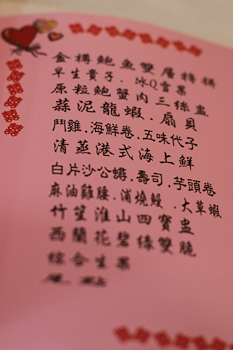 金樽鮑魚雙層特拼
早生貴子．冰Q雪果
原粒鮑蟹肉三絲盅
蒜泥龍蝦．扇貝
鬥雞．海鮮卷．五味代子
清蒸港式海上鮮
白片沙公蟳．壽司．芋頭卷
麻油雞腰．浦燒鰻．大草蝦
竹笙淮山四寶盅
西蘭花碧綠雙脆
綜合生菓